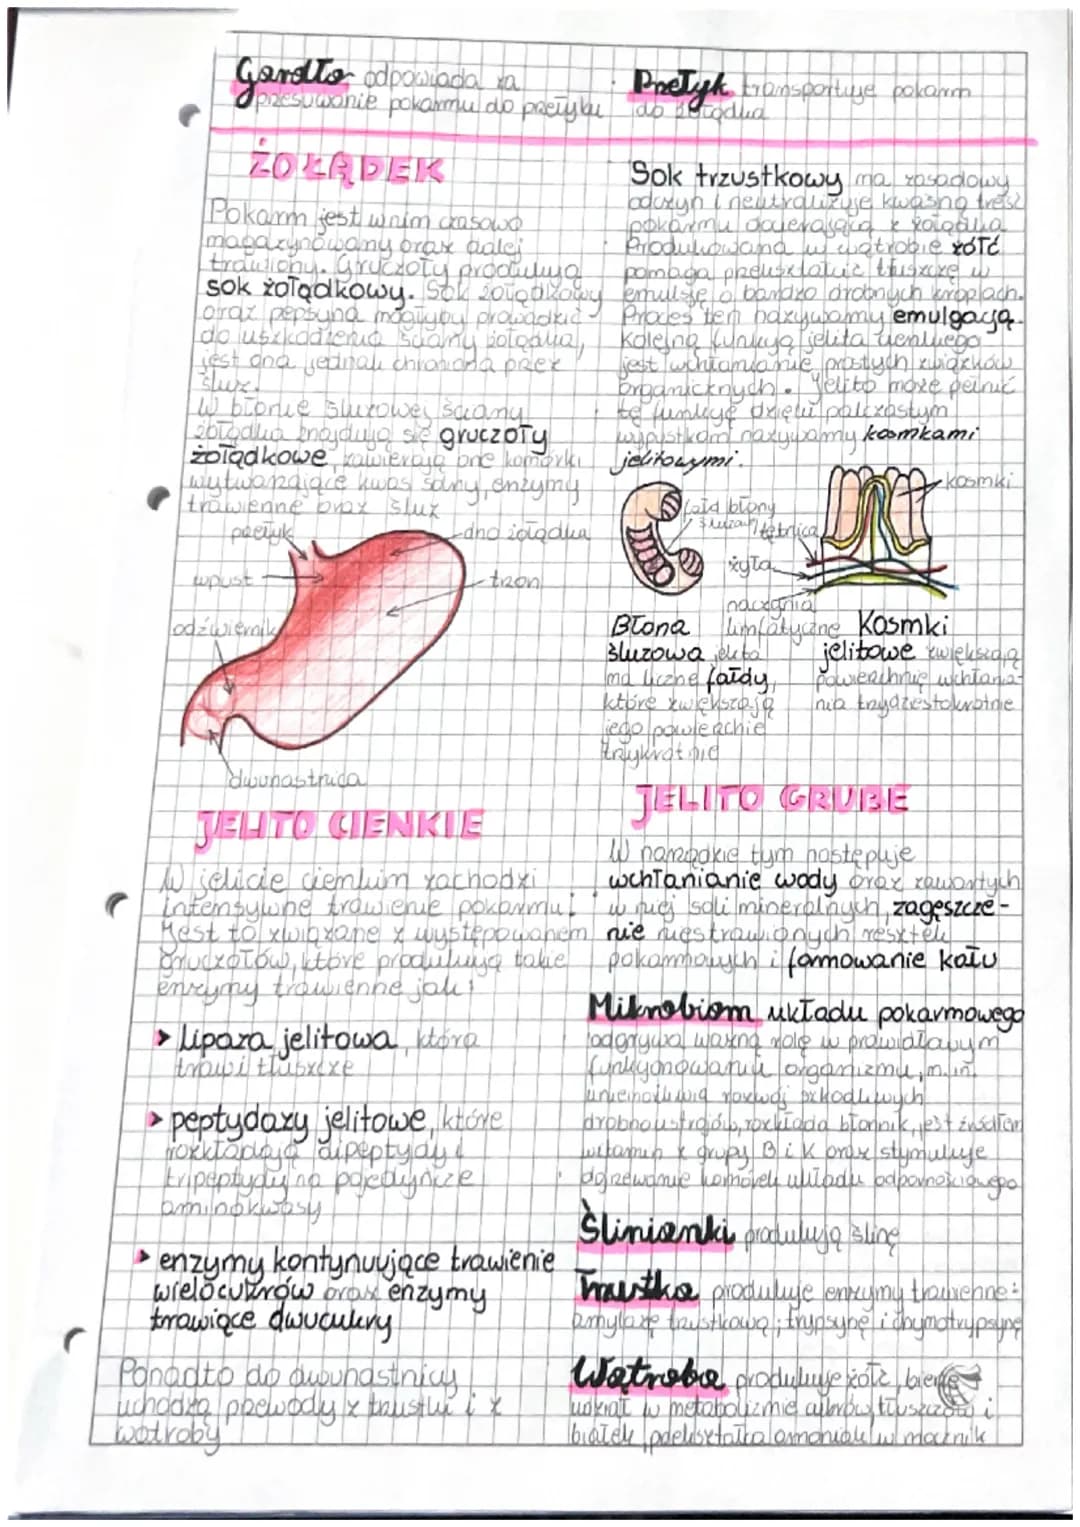 Gardło odpowiada za
przesuwanie pokarmu do przełyku
Przełyk transportuje pokarm
do żołądka
ŻOŁĄDEK
Pokarm jest w nim czasowo
magazynowany oraz dalej
trawiony. Gruczoły produkują
sok żołądkowy. Sok żołądkowy
oraz pepsyna mogłyby prowadzić
do uszkodzenia ściany żołądka,
jest ona jednak chroniona przez
śluz.
W błonie śluzowej ściany
żołądka znajdują się gruczoły
żołądkowe, zawierają one komórki
wytwarzające kwas solny, enzymy
trawienne oraz śluz
przełyk
dno żołądka
wpust
trzon
odźwiernik
dwunastnica
JELITO CIENKIE
W jelicie cienkim zachodzi
intensywne trawienie pokarmu.
Jest to związane z występowaniem
gruczołów, które produkują takie
enzymy trawienne jak:
> lipaza jelitowa, która
trawi tłuszcze
> peptydazy jelitowe, które
rozkładają dipeptydy i
tripeptydy na pojedyncze
aminokwasy
> enzymy kontynuujące trawienie
wielocukrów oraz enzymy
trawiące dwucukry
Ponadto do dwunastnicy
uchodzą przewody z trzustki i z
wątroby
Sok trzustkowy ma zasadowy
odczyn i neutralizuje kwaśną treść
pokarmu docierającą z żołądka
Produkowana w wątrobie żółć
pomaga przekształcić tłuszcze w
emulsję o bardzo drobnych kroplach.
Proces ten nazywamy emulgacją.
Kolejną funkcją jelita cienkiego
jest wchłanianie prostych związków
organicznych. Jelito może pełnić
tę funkcję dzięki palczastym
wypustkom nazywanymi kosmkami
jelitowymi.
fałd błony
śluzowej
kosmki
tętnica
żyła
naczynia
limfatyczne
Błona
śluzowa jelita
ma liczne fałdy,
które zwiększają
jego powierzchnię
trzykrotnie
Kosmki
jelitowe zwiększają
powierzchnię wchłania-
nia trzydziestokrotnie
JELITO GRUBE
W narządzie tym następuje
wchłanianie wody oraz zawartych
w niej soli mineralnych, zagęszcze-
nie niestrawionych resztek
pokarmowych i formowanie kału
Mikrobiom układu pokarmowego
odgrywa ważną rolę w prawidłowym
funkcjonowaniu organizmu, m.in.
uniemożliwia rozwój szkodliwych
drobnoustrojów, rozkłada błonnik, jest źródłem
witamin z grupy B i K oraz stymuluje
dojrzewanie komórek układu odpornościowego
Ślinianki produkują ślinę
Trzustka produkuje enzymy trawienne:
amylazę trzustkową, trypsynę i chymotrypsynę
Wątroba produkuje żółć, bierze
udział w metabolizmie cukrów, tłuszczów i
białek, przekształca amoniak w mocznik